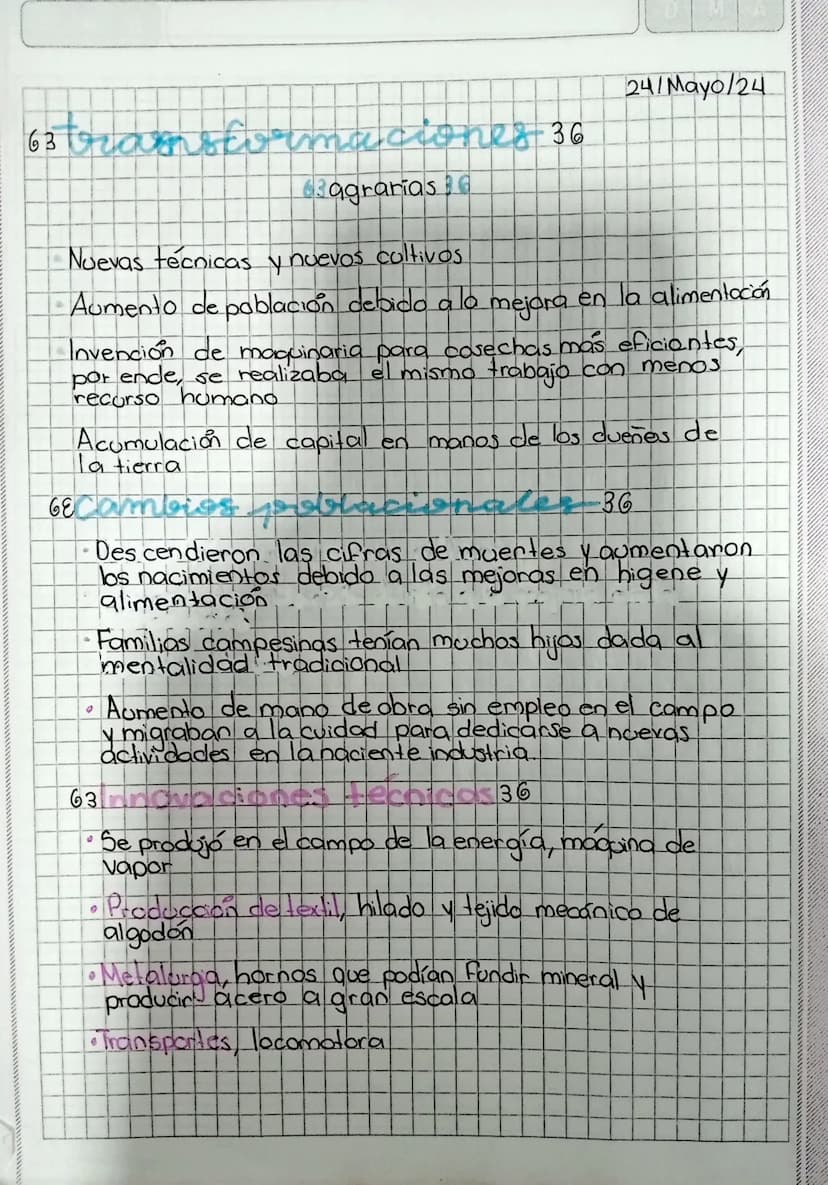 24/Mayo/24
63 transformaciones 36
63 agrarias 36
Nuevas técnicas y nuevos cultivos
Aumento de población debido a la mejora en la alimentación
Invención de maquinaria para cosechas más eficiantes,
por ende, se realizaba el mismo trabajo con menos
recurso humano
Acumulación de capital en manos de los dueños de
la tierra
63 Cambios poblacionales 36
· Descendieron las cifras de muertes y aumentaron
los nacimientos debido a las mejoras en higene y
alimentación
· Familias campesinas tenían muchos hijos dada al
mentalidad tradicional
• Aumento de mano de obra sin empleo en el campo
y migraban a la cuidad para dedicarse a nuevas
actividades en la naciente industria.
63 Innovaciones técnicas 36
• Se produjó en el campo de la energía, máquina de
vapor
• Producción de textil, hilado y tejido mecánico de
algodón
• Metalurgia, hornos que podían fundir mineral y
producir acero a gran escala
• Transportes, locomotora